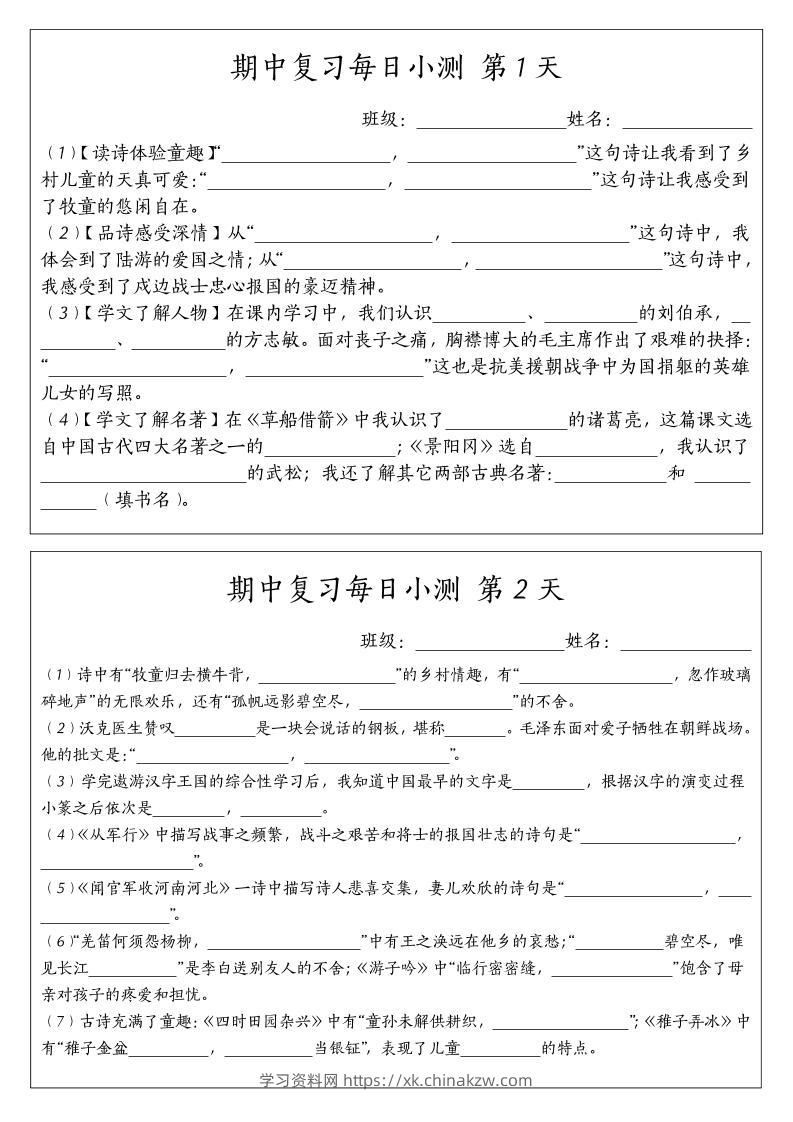 期中复习每日小测 第 1 天
班级：________________姓名：______________
（1）【读诗体验童趣】“__________________，__________________”这句诗让我看到了乡
村儿童的天真可爱：“___________________，____________________”这句诗让我感受到
了牧童的悠闲自在。
（2）【品诗感受深情】从“___________________，___________________”这句诗中，我
体会到了陆游的爱国之情；从“___________________，____________________”这句诗中，
我感受到了戍边战士忠心报国的豪迈精神。
（3）【学文了解人物】在课内学习中，我们认识__________、__________的刘伯承，__
________、__________的方志敏。面对丧子之痛，胸襟博大的毛主席作出了艰难的抉择：
“___________________，___________________”这也是抗美援朝战争中为国捐躯的英雄
儿女的写照。
（4）【学文了解名著】在《草船借箭》中我认识了_____________的诸葛亮，这篇课文选
自中国古代四大名著之一的______________；《景阳冈》选自_____________，我认识了
______________________的武松；我还了解其它两部古典名著：____________和 ______
______（填书名）。
期中复习每日小测 第 2 天
班级：________________姓名：______________
（1）诗中有“牧童归去横牛背，_________________”的乡村情趣，有“___________________，忽作玻璃
碎地声”的无限欢乐，还有“孤帆远影碧空尽，___________________”的不舍。
（2）沃克医生赞叹__________是一块会说话的钢板，堪称________。毛泽东面对爱子牺牲在朝鲜战场。
他的批文是：“___________________，__________________”。
（3）学完遨游汉字王国的综合性学习后，我知道中国最早的文字是_________，根据汉字的演变过程
小篆之后依次是_________，__________。
（4）《从军行》中描写战事之频繁，战斗之艰苦和将士的报国壮志的诗句是“___________________，
___________________”。
（5）《闻官军收河南河北》一诗中描写诗人悲喜交集，妻儿欢欣的诗句是“_________________，____
________________”。
（6）“羌笛何须怨杨柳，___________________”中有王之涣远在他乡的哀愁；“___________碧空尽，唯
见长江___________”是李白送别友人的不舍；《游子吟》中“临行密密缝，_______________”饱含了母
亲对孩子的疼爱和担忧。
（7）古诗充满了童趣：《四时田园杂兴》中有“童孙未解供耕织，_________________”；《稚子弄冰》中
有“稚子金盆__________，___________当银钲”，表现了儿童__________的特点。
学习资料网 https://xk.chinakzw.com